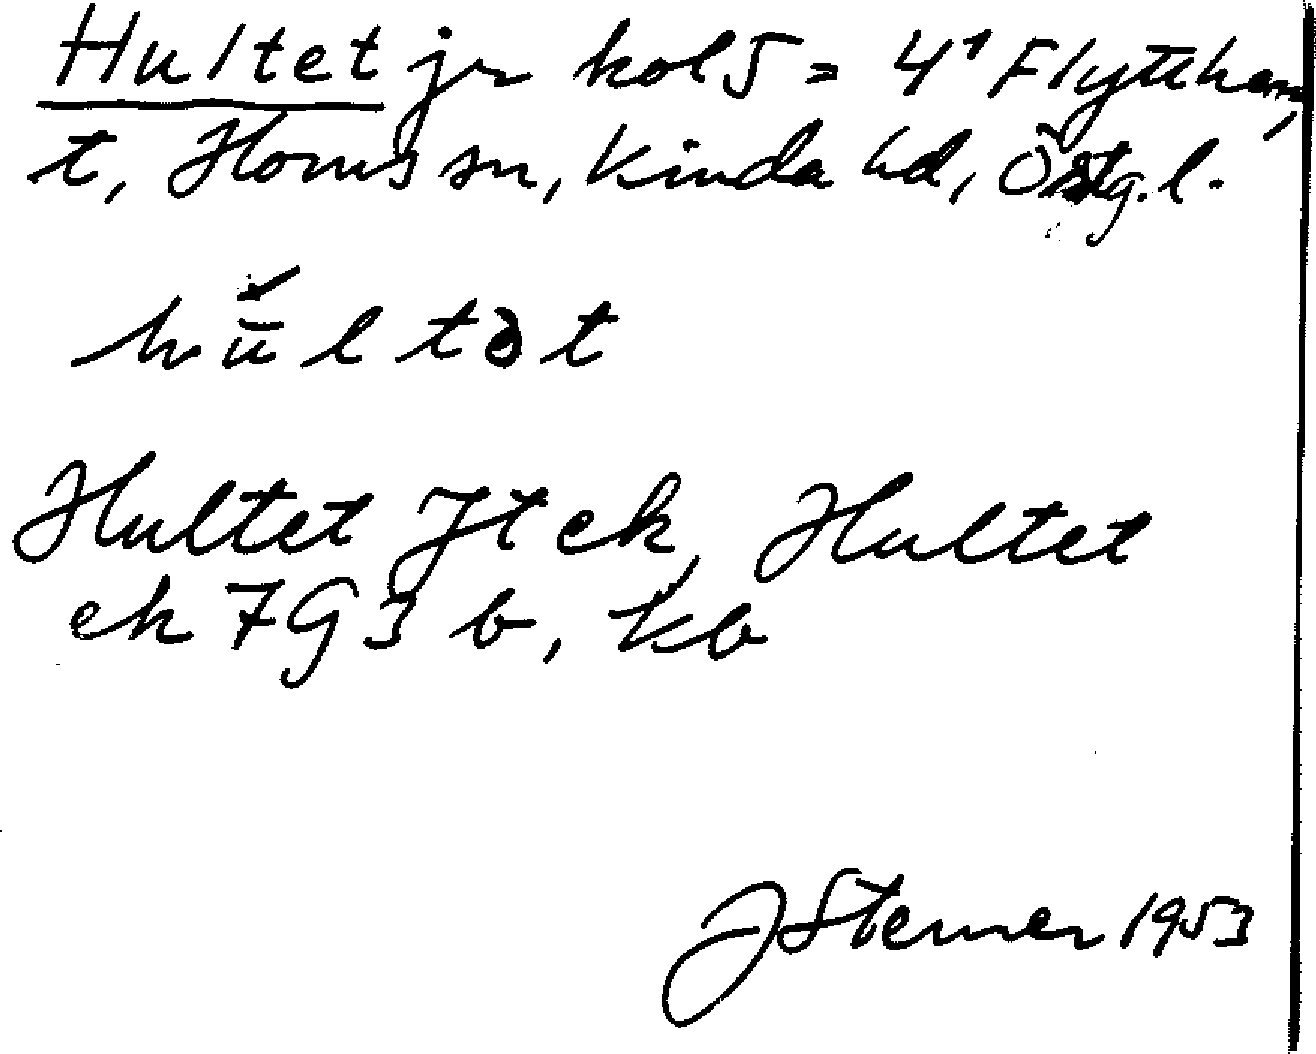 Hultet jr kol 5 = 4¹ Flyttham,
t, Horns sn, Kinda hd, Östg.l.
hūltət
Hultet Jt ek, Hultet
ek 7G3 b, kb
J Sterner 1953